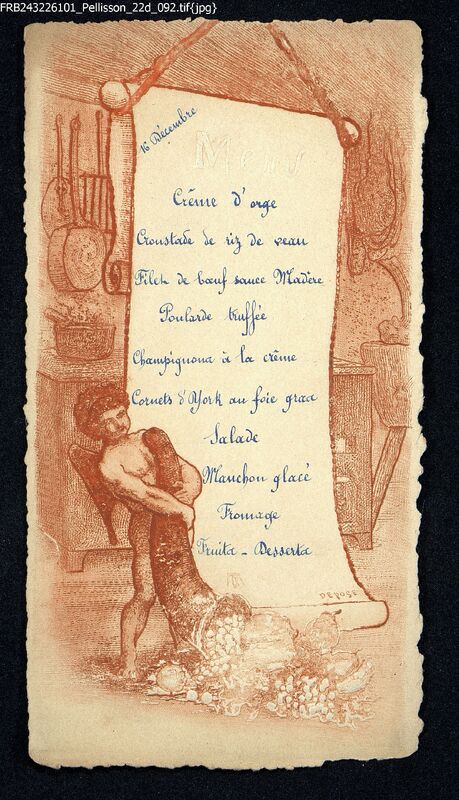 FRB243226101_Pellisson_22d_092.tif{jpg}
16 Décembre
Menu
Crême d'orge
Croustade de riz de veau
Filet de bœuf sauce Madère
Poularde truffée
Champignons à la crême
Cornets d'York au foie gras
Salade
Manchon glacé
Fromage
Fruits - Desserts
DEROSE